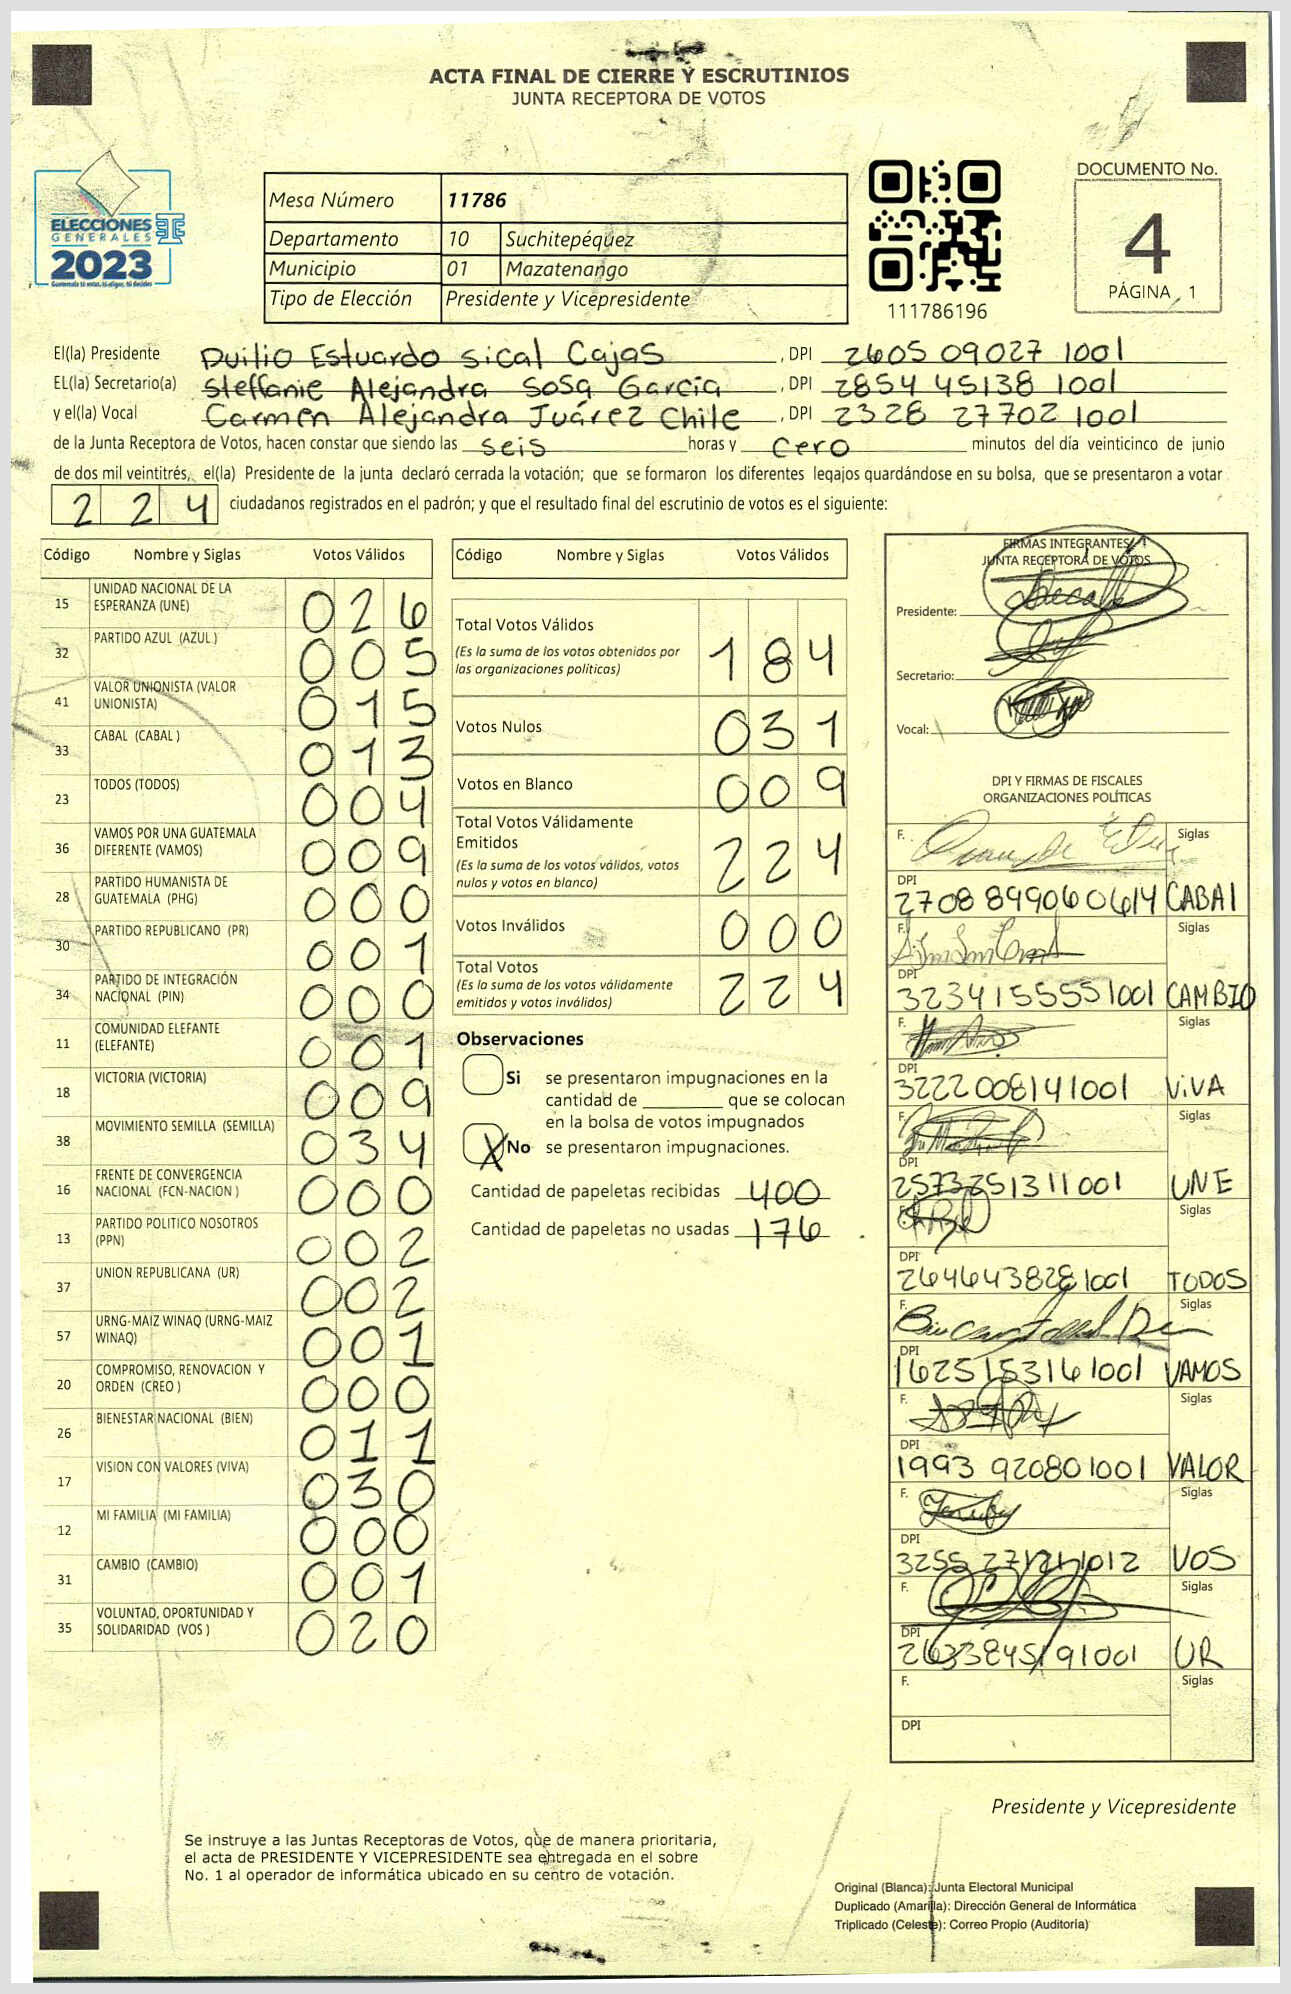 ACTA FINAL DE CIERRE Y ESCRUTINIOS
JUNTA RECEPTORA DE VOTOS
ELECCIONES
GENERALES
2023
Guatemala tú votas, tú eliges, tú decides
Mesa Número 11786
Departamento 10 Suchitepéquez
Municipio 01 Mazatenango
Tipo de Elección Presidente y Vicepresidente
111786196
DOCUMENTO No.
4
PÁGINA 1
El(la) Presidente Duilio Estuardo Sical Cajas , DPI 2605 09027 1001
EL(la) Secretario(a) Steffanie Alejandra Sosa García , DPI 2854 45138 1001
y el(la) Vocal Carmen Alejandra Juárez Chile , DPI 2328 27702 1001
de la Junta Receptora de Votos, hacen constar que siendo las seis horas y cero minutos del día veinticinco de junio
de dos mil veintitrés, el(la) Presidente de la junta declaró cerrada la votación; que se formaron los diferentes legajos guardándose en su bolsa, que se presentaron a votar
224 ciudadanos registrados en el padrón; y que el resultado final del escrutinio de votos es el siguiente:
Código Nombre y Siglas Votos Válidos
15 UNIDAD NACIONAL DE LA ESPERANZA (UNE) 026
32 PARTIDO AZUL (AZUL ) 005
41 VALOR UNIONISTA (VALOR UNIONISTA) 015
33 CABAL (CABAL ) 013
23 TODOS (TODOS) 004
36 VAMOS POR UNA GUATEMALA DIFERENTE (VAMOS) 009
28 PARTIDO HUMANISTA DE GUATEMALA (PHG) 000
30 PARTIDO REPUBLICANO (PR) 001
34 PARTIDO DE INTEGRACIÓN NACIONAL (PIN) 000
11 COMUNIDAD ELEFANTE (ELEFANTE) 001
18 VICTORIA (VICTORIA) 009
38 MOVIMIENTO SEMILLA (SEMILLA) 034
16 FRENTE DE CONVERGENCIA NACIONAL (FCN-NACION ) 000
13 PARTIDO POLITICO NOSOTROS (PPN) 002
37 UNION REPUBLICANA (UR) 002
57 URNG-MAIZ WINAQ (URNG-MAIZ WINAQ) 001
20 COMPROMISO, RENOVACION Y ORDEN (CREO ) 000
26 BIENESTAR NACIONAL (BIEN) 011
17 VISION CON VALORES (VIVA) 030
12 MI FAMILIA (MI FAMILIA) 000
31 CAMBIO (CAMBIO) 001
35 VOLUNTAD, OPORTUNIDAD Y SOLIDARIDAD (VOS ) 020
Código Nombre y Siglas Votos Válidos
Total Votos Válidos 184
(Es la suma de los votos obtenidos por
las organizaciones políticas)
Votos Nulos 031
Votos en Blanco 009
Total Votos Válidamente
Emitidos 224
(Es la suma de los votos válidos, votos
nulos y votos en blanco)
Votos Inválidos 000
Total Votos 224
(Es la suma de los votos válidamente
emitidos y votos inválidos)
Observaciones
Si se presentaron impugnaciones en la
cantidad de ________ que se colocan
en la bolsa de votos impugnados
X No se presentaron impugnaciones.
Cantidad de papeletas recibidas 400
Cantidad de papeletas no usadas 176
FIRMAS INTEGRANTES
JUNTA RECEPTORA DE VOTOS
Presidente:
Secretario:
Vocal:
DPI Y FIRMAS DE FISCALES
ORGANIZACIONES POLÍTICAS
F. Siglas
DPI
2708 89906 0614 CABAl
F. Siglas
DPI
3234155551001 CAMBIO
F. Siglas
DPI
3222008141001 ViVA
F. Siglas
DPI
2573251311001 UNE
F. Siglas
DPI
2646438281001 TODOS
F. Siglas
DPI
1625153161001 VAMOS
F. Siglas
DPI
1993 920801001 VALOR
F. Siglas
DPI
3255 27121 1012 VOS
F. Siglas
DPI
2633845191001 UR
F. Siglas
DPI
Presidente y Vicepresidente
Se instruye a las Juntas Receptoras de Votos, que de manera prioritaria,
el acta de PRESIDENTE Y VICEPRESIDENTE sea entregada en el sobre
No. 1 al operador de informática ubicado en su centro de votación.
Original (Blanca): Junta Electoral Municipal
Duplicado (Amarilla): Dirección General de Informática
Triplicado (Celeste): Correo Propio (Auditoría)